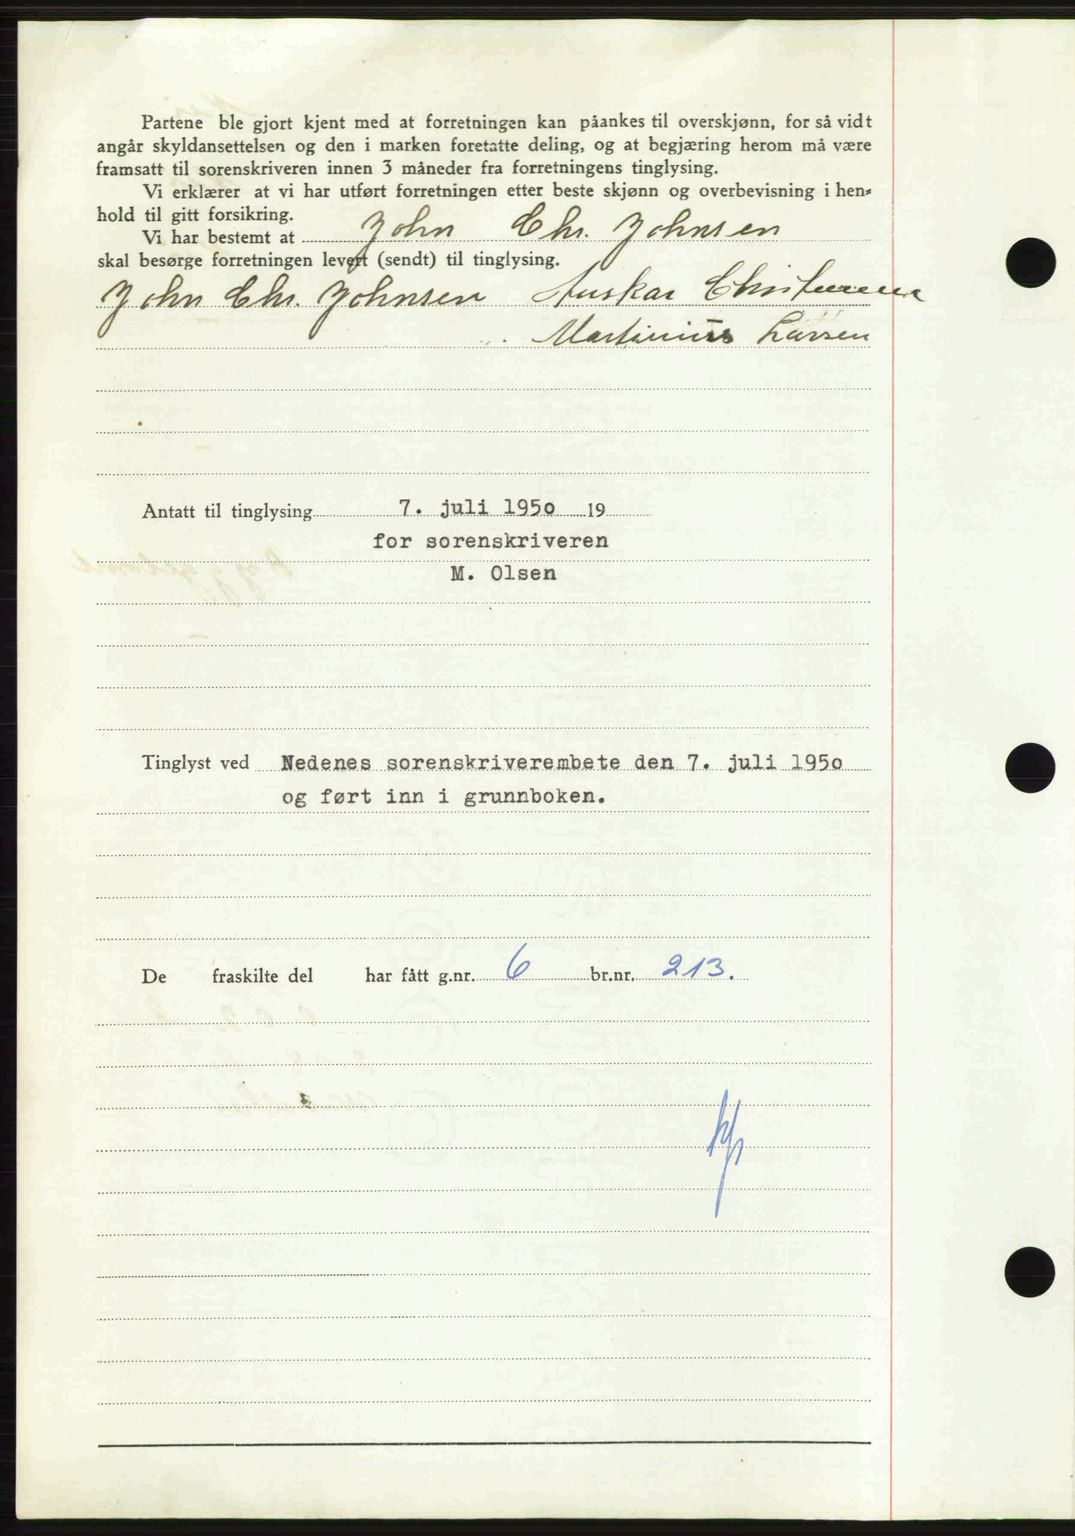 Partene ble gjort kjent med at forretningen kan påankes til overskjønn, for så vidt
angår skyldansettelsen og den i marken foretatte deling, og at begjæring herom må være
framsatt til sorenskriveren innen 3 måneder fra forretningens tinglysing.
Vi erklærer at vi har utført forretningen etter beste skjønn og overbevisning i hen-
hold til gitt forsikring.
Vi har bestemt at John Chr. Johnsen
skal besørge forretningen levert (sendt) til tinglysing.
John Chr. Johnsen
Martinius Larsen
Antatt til tinglysing 7. juli 1950 19
for sorenskriveren
M. Olsen
Tinglyst ved Nedenes sorenskriverembete den 7. juli 1950
og ført inn i grunnboken.
De fraskilte del har fått g.nr. 6 br.nr. 213.